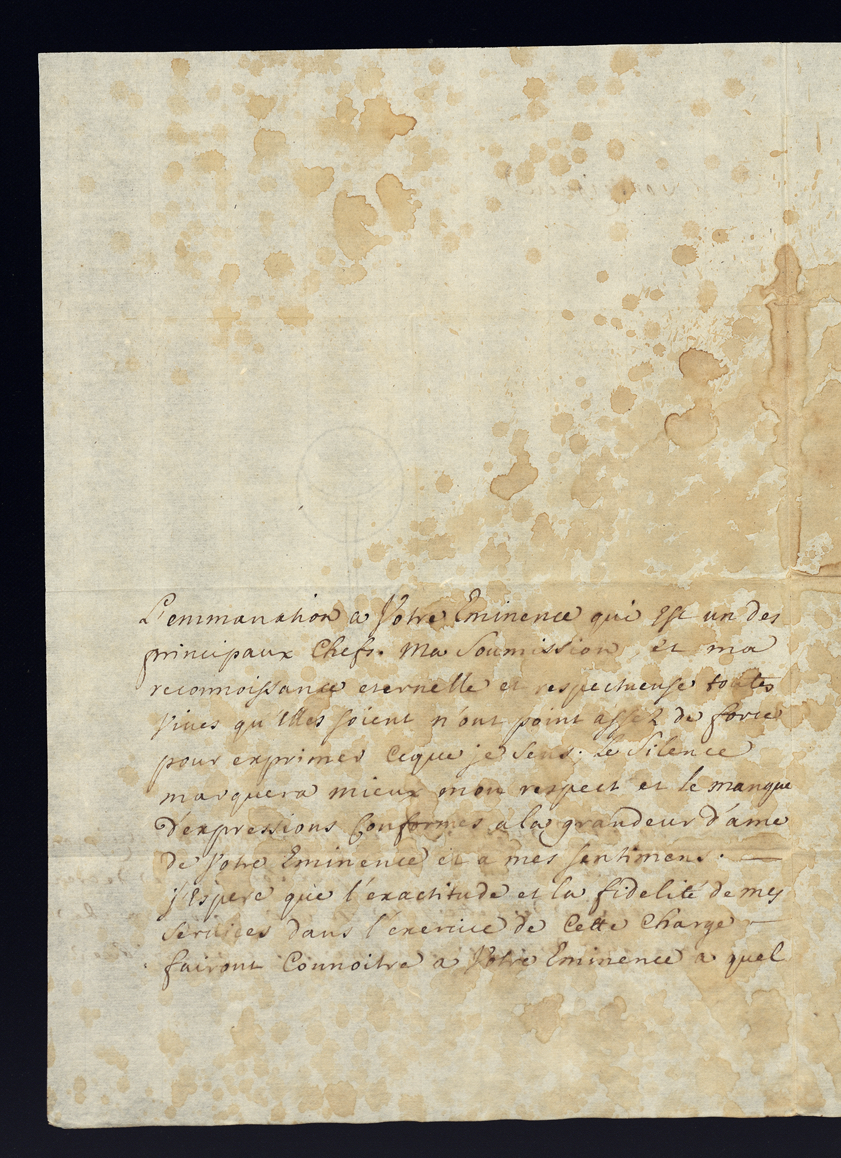 L'emmanation a Votre Eminence qui Est un des
principaux Chefs. Ma Soumission et ma
reconnoissance eternelle et respectueuse toutes
Vives qu'Elles soient n'ont point assez de force
pour exprimer ceque je sens; Le Silence
marquera mieux mon respect et le manque
D'expressions Conformes a la grandeur d'ame
de Votre Eminence et a mes sentimens. —
j'Espere que l'exactitude et la fidelité de mes
services dans l'exercice de Cette Charge —
fairont Connoitre a Votre Eminence a quel